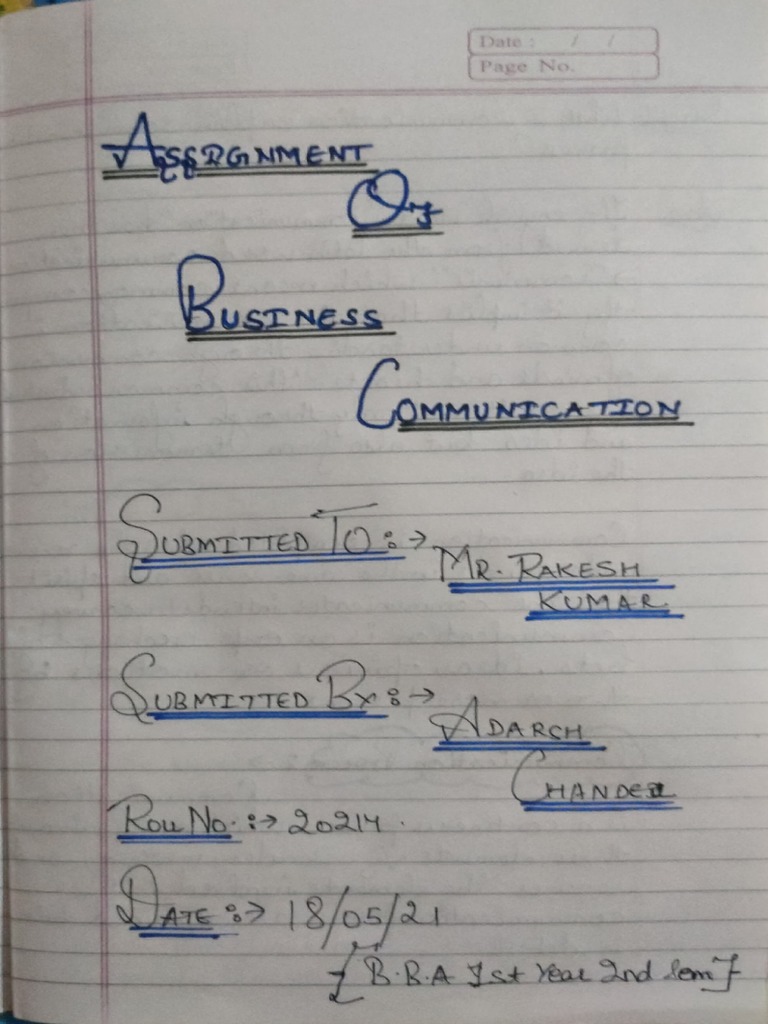 Date : / /
Page No.
ASSIGNMENT
Of
BUSINESS
COMMUNICATION
SUBMITTED TO :→
MR. RAKESH
KUMAR
SUBMITTED BY :→
ADARSH
CHANDEL
ROLL NO. :→ 20214.
DATE :→ 18/05/21
[B.B.A 1st Year 2nd Sem]